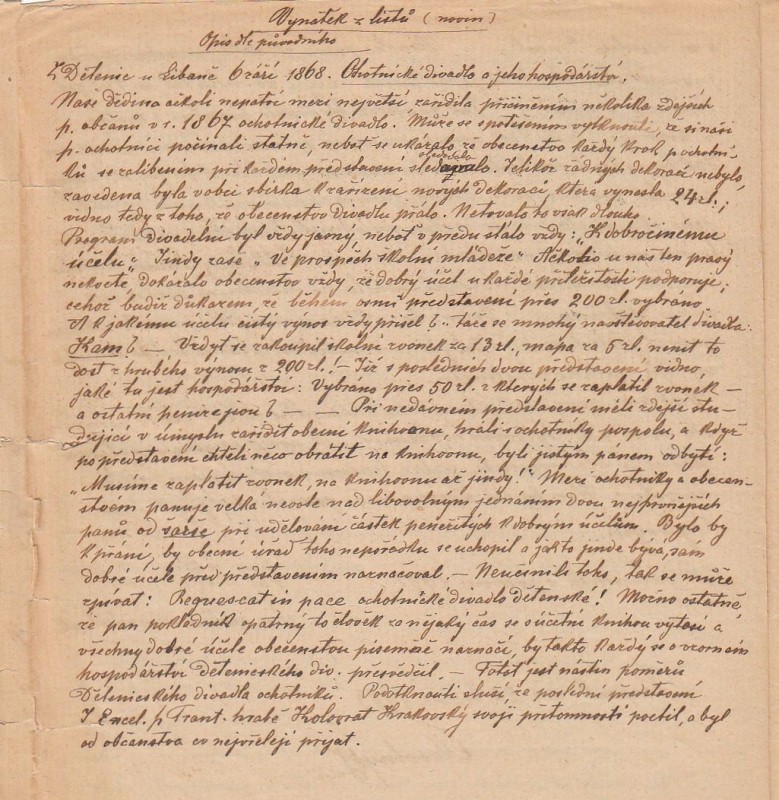 Výňatek z listů (novin)
Opis dle původního
Z Dětenic u Libáně 6 září 1868. Ochotnické divadlo a jeho hospodářství.
Naše dědina ačkoli nepatří mezi největší zařídila přičiněním několika zdejších
p. občanů v r. 1867 ochotnické divadlo. Může se s potěšením vytknouti, že si naši
p. ochotníci počínali statně, neboť se ukázalo že obecenstvo každý krok p. ochotní-
ků se zalíbením při každém představení sledovalo. Jelikož řádných dekorací nebylo,
zavedena byla v obci sbírka k zařízení nových dekorací, která vynesla 24 zl.;
vidno tedy z toho, že obecenstvo divadlu přálo. Netrvalo to však dlouho.
Program divadelní byl vždy jasný, neboť v předu stálo vždy: „K dobročinému
účelu." Jindy zase „Ve prospěch školní mládeže" Ačkoliv u nás ten pravý
nekvete, dokázalo obecenstvo vždy, že dobrý účel u každé příležitosti podporuje;
čehož budiž důkazem, že během osmi představení přes 200 zl. vybráno
A k jakému účelu čistý výnos vždy přišel? - táže se mnohý navštěvovatel divadla:
Kam? — Vždyť se zakoupil školní zvonek za 13 zl., mapa za 5 zl. není to
dost z hrubého výnosu z 200 zl.! - Již z posledních dvou představení vidno,
jaké tu jest hospodářství: Vybráno přes 50 zl. z kterých se zaplatil zvonek —
a ostatní peníze jsou? — — Při nedávném představení měli zdejší stu-
dující v úmyslu zaříditi obecní knihovnu, hráli s ochotníky pospolu, a když
po představení chtěli něco obrátit na knihovnu, byli jistým pánem odbyti:
„Musíme zaplatit zvonek, na knihovnu až jindy!" Mezi ochotníky a obecen-
stvem panuje velká nevole nad libovolným jednáním dvou nejprvnějších
panů od              při udělování částek peněžitých k dobrým účelům. Bylo by
k přání, by obecní úřad toho nepořádku se uchopil a jak to jinde bývá, sám
dobré účele před představením naznačoval. — Neučiníli toho, tak se může
zpívat: Requescat in pace ochotnické divadlo dětenské! Možno ostatně,
že pan pokladník opatrný to člověk za nějaký čas se s účetní knihou vytasí a
všechny dobré účele obecenstvu písemně naznačí, by takto každý se o vzorném
hospodářství dětenického div. přesvědčil. — Totiť jest nástin poměrů
Dětenického divadla ochotníků. Podotknouti sluší že poslední představení
J. Excel. p. Frant. hrabě Kolovrat Krakovský svojí přítomností poctil, a byl
od občanstva co nejvřeleji přijat.